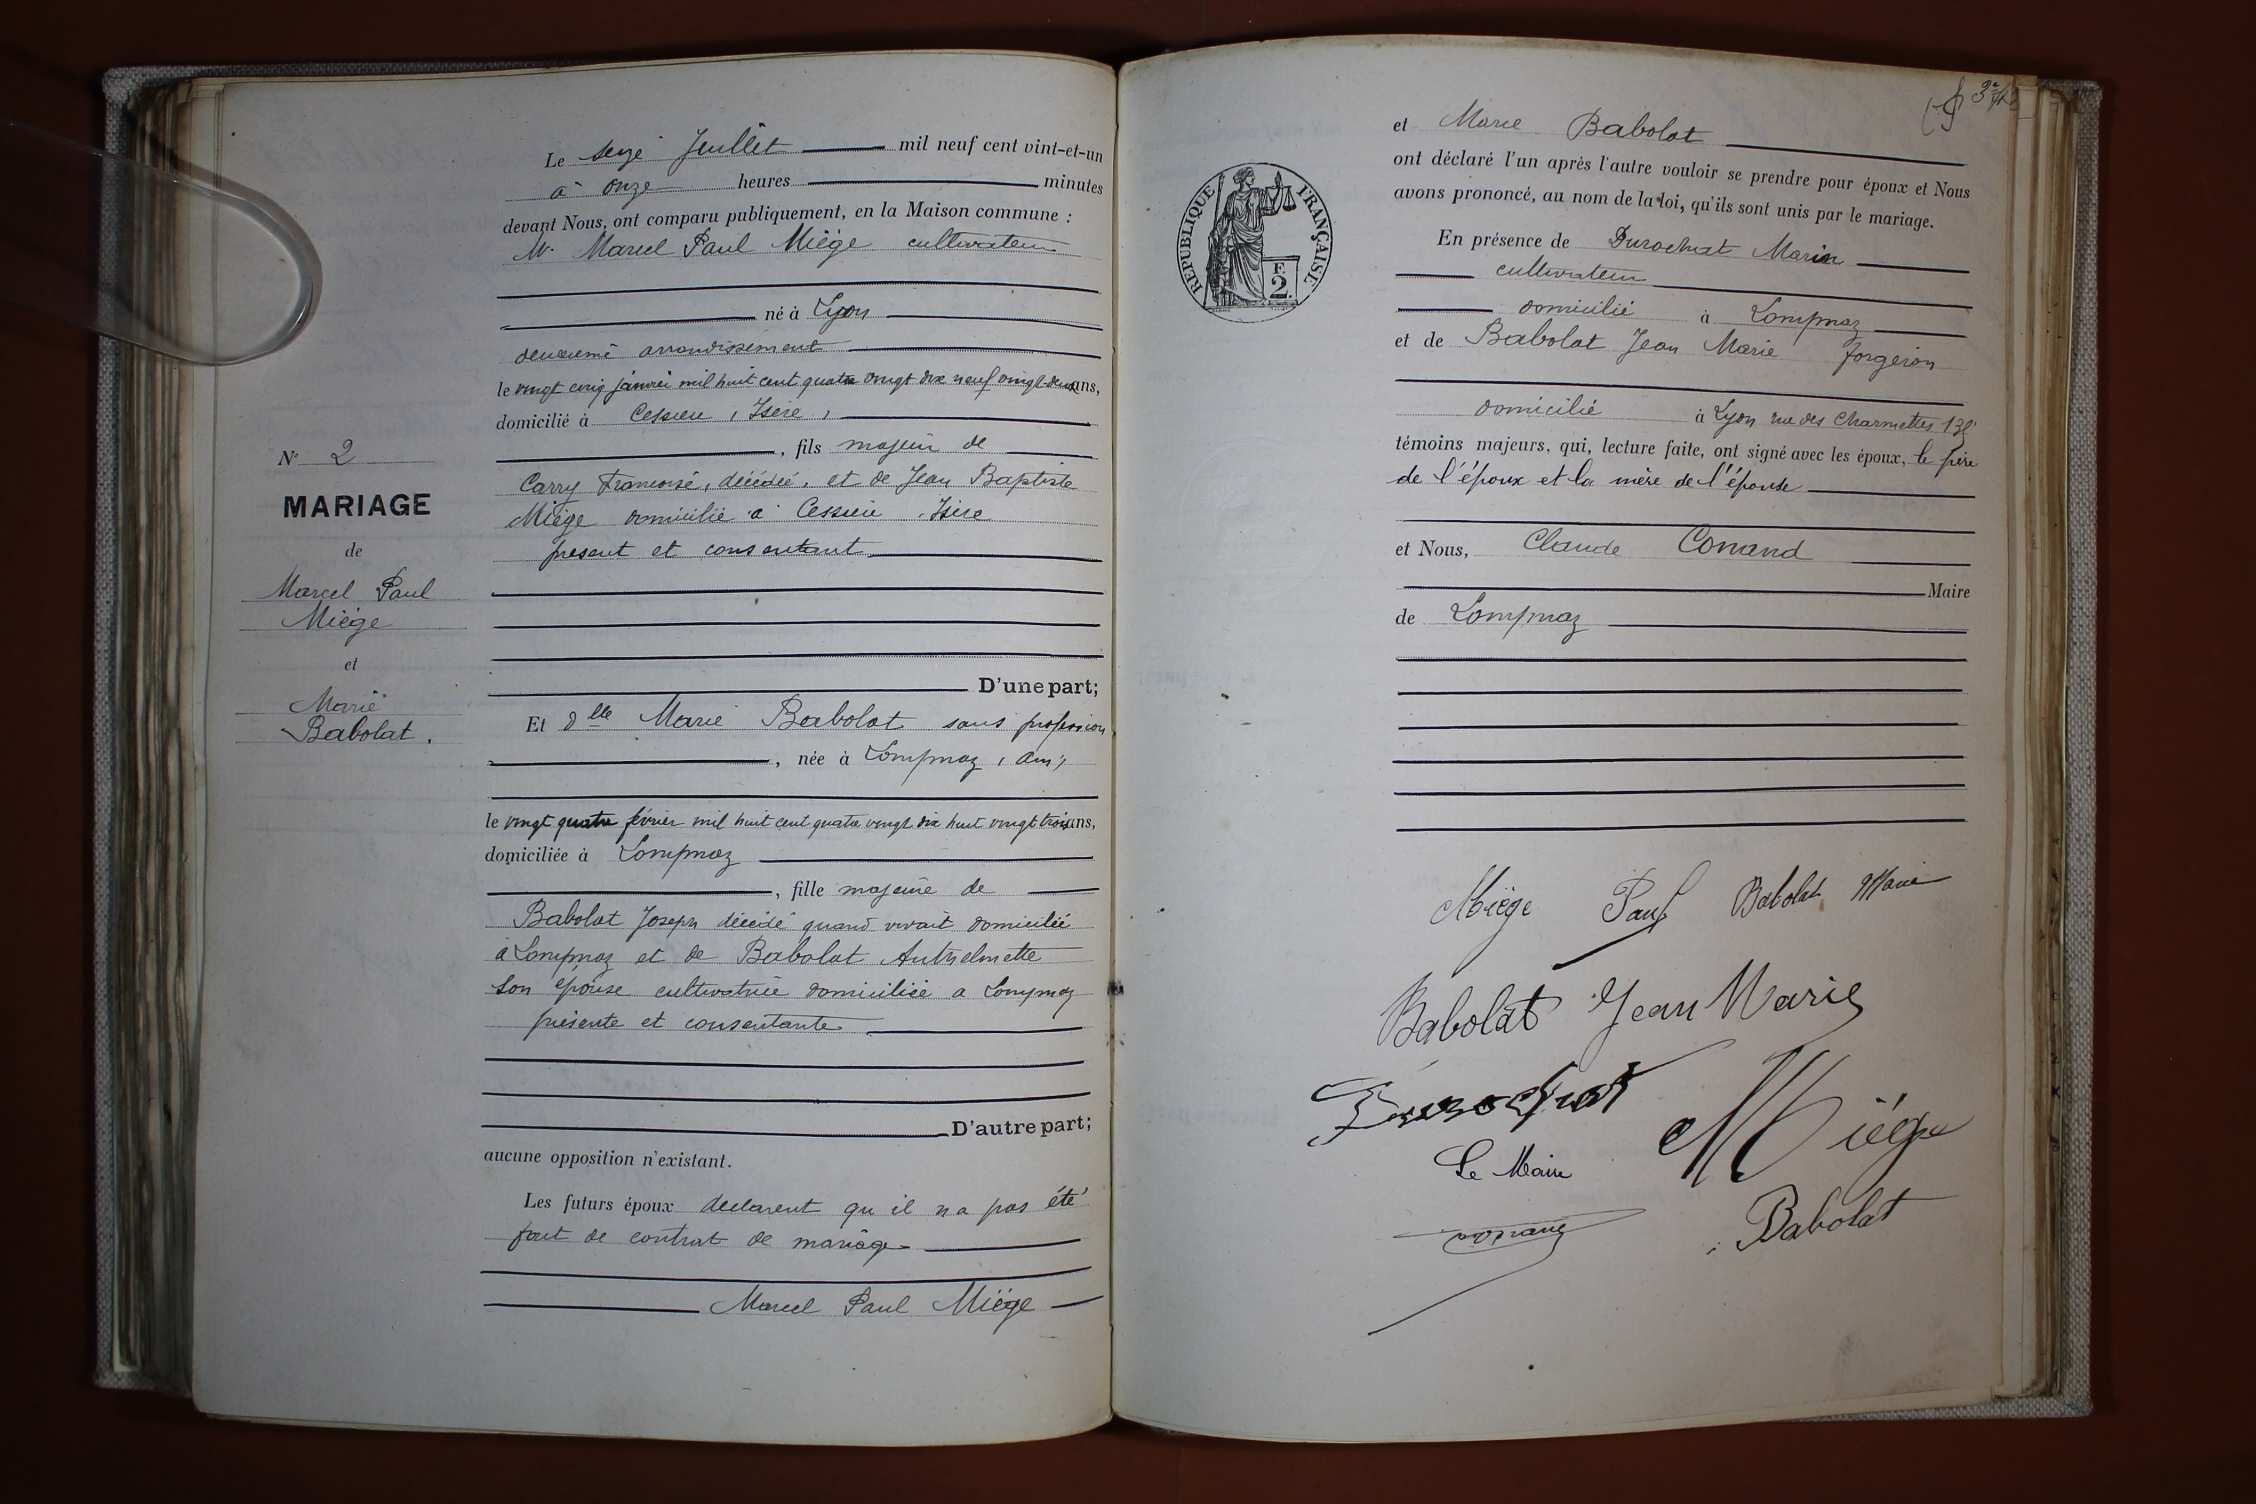 Le seize Juillet mil neuf cent vint-et-un
à onze heures minutes
devant Nous, ont comparu publiquement, en la Maison commune :
Mr Marcel Paul Miége cultivateur
né à Lyon
deuxième arrondissement
le vingt cinq janvier mil huit cent quatre vingt dix neuf vingt-deux ans,
domicilié à Cessieu, Isère,
, fils majeur de
Carry Francoise, décédée, et de Jean Baptiste
Miége domicilié à Cessieu Isère
présent et consentant
D'une part;
Et Dlle Marie Babolat sans profession
, née à Lompnaz, Ain,
le vingt quatre février mil huit cent quatre vingt dix huit vingt trois ans,
domiciliée à Lompnaz
, fille majeure de
Babolat Joseph décédé quand vivait domicilié
à Lompnaz et de Babolat Anthelmette
son épouse cultivatrice domiciliée a Lompnaz
présente et consentante
D'autre part;
aucune opposition n'existant.
Les futurs époux déclarent qu'il n'a pas été
fait de contrat de mariage
Marcel Paul Miége
N° 2
MARIAGE
de
Marcel Paul
Miége
et
Marie
Babolat.
et Marie Babolat
ont déclaré l'un après l'autre vouloir se prendre pour époux et Nous
avons prononcé, au nom de la loi, qu'ils sont unis par le mariage.
En présence de Durochat Marin
cultivateur
domicilié à Lompnaz
et de Babolat Jean Marie forgeron
domicilié à Lyon rue des Charmettes
témoins majeurs, qui, lecture faite, ont signé avec les époux, le père
de l'époux et la mère de l'épouse
et Nous, Claude Conand
Maire
de Lompnaz
REPUBLIQUE FRANÇAISE
F.
2.
Miège Paul Babolat Marie
Babolat Jean Marie
Durochat
Miége
Le Maire
Conand
Babolat